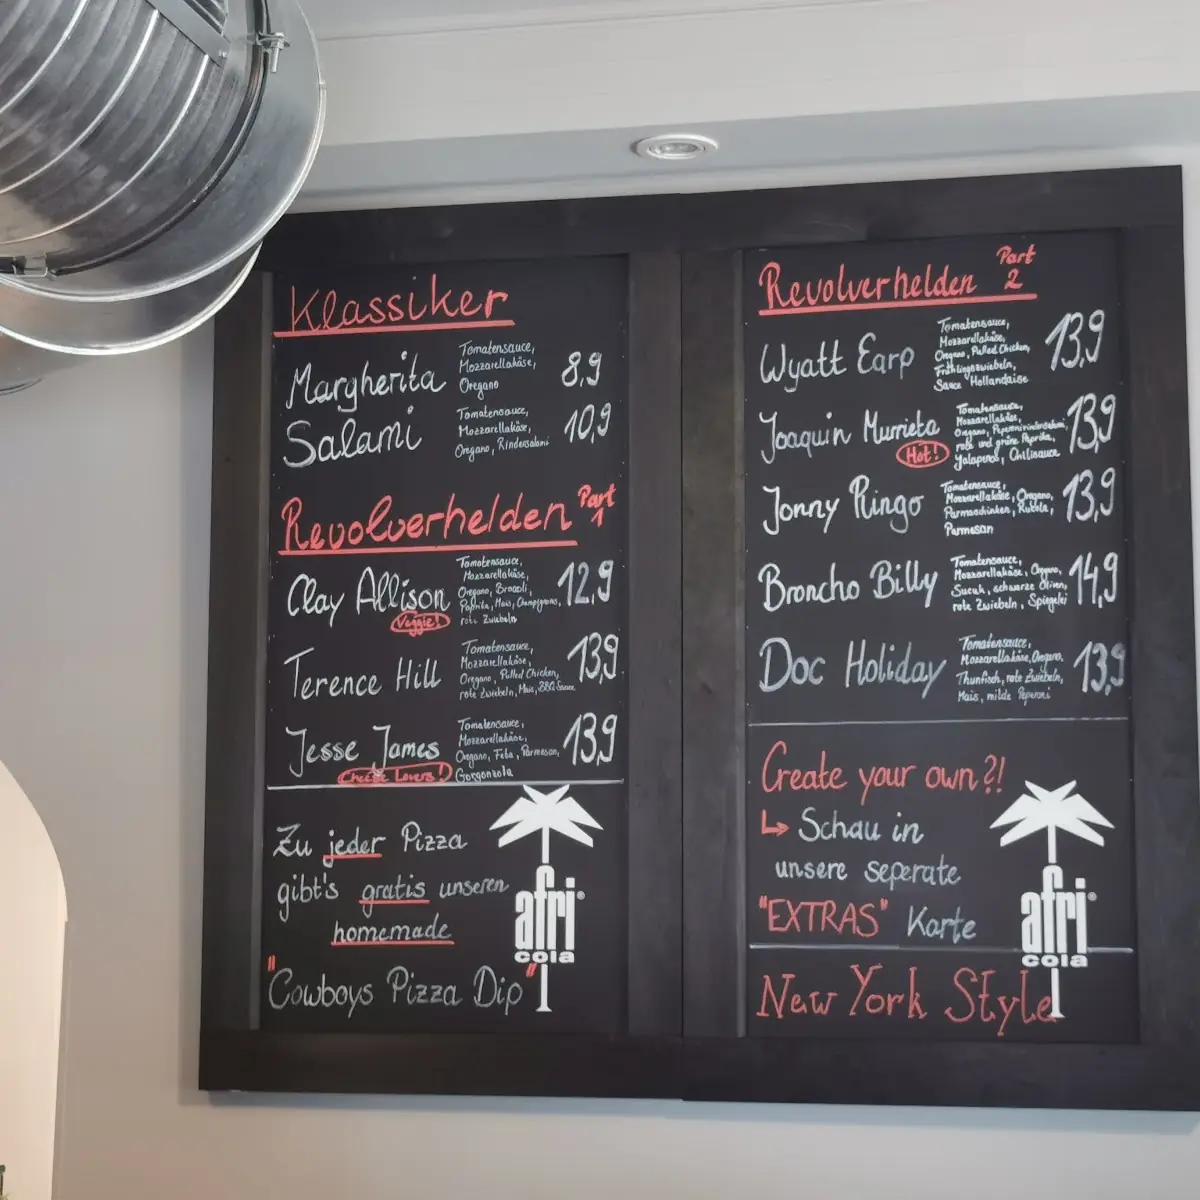 Klassiker
Margherita
Tomatensauce,
Mozzarellakäse,
Oregano
8,9
Salami
Tomatensauce,
Mozzarellakäse,
Oregano, Rindersalami
10,9
Revolverhelden Part 1
Clay Allison
Veggie!
Tomatensauce,
Mozzarellakäse,
Oregano, Broccoli,
Paprika, Mais, Champignons,
rote Zwiebeln
12,9
Terence Hill
Tomatensauce,
Mozzarellakäse,
Oregano, Pulled Chicken,
rote Zwiebeln, Mais, BBQ Sauce
13,9
Jesse James
Cheese Lovers!
Tomatensauce,
Mozzarellakäse,
Oregano, Feta, Parmesan,
Gorgonzola
13,9
Zu jeder Pizza
gibt's gratis unseren
homemade
"Cowboys Pizza Dip"
afri
cola
Revolverhelden Part 2
Wyatt Earp
Tomatensauce,
Mozzarellakäse,
Oregano, Pulled Chicken,
Frühlingszwiebeln,
Sauce Hollandaise
13,9
Joaquin Murrieta
Hot!
Tomatensauce,
Mozzarellakäse,
Oregano, Peperonirindersalami,
rote und grüne Paprika,
Jalapenos, Chilisauce
13,9
Jonny Ringo
Tomatensauce,
Mozzarellakäse, Oregano,
Parmaschinken, Rukola,
Parmesan
13,9
Broncho Billy
Tomatensauce,
Mozzarellakäse, Oregano,
Sucuk, schwarze Oliven,
rote Zwiebeln, Spiegelei
14,9
Doc Holiday
Tomatensauce,
Mozzarellakäse, Oregano,
Thunfisch, rote Zwiebeln,
Mais, milde Peperoni
13,9
Create your own?!
Schau in
unsere seperate
"EXTRAS" Karte
afri
cola
New York Style